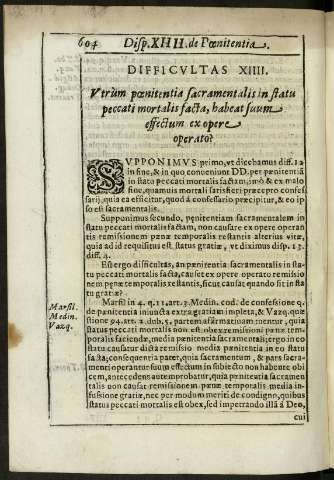 604 Disp. XIIII. de Pœnitentia.
DIFFICVLTAS XIIII.
Vtrùm pœnitentia sacramentalis in statu
peccati mortalis facta, habeat suum
effectum ex opere
operato?
SVPPONIMVS primo, vt dicebamus diff. 12
in fine, & in quo conveniunt DD. per pœnitentiã
in stato peccati mortalis factam, imò & ex malo
fine, quamuis mortali satisfieri præcepto confes
sarij, quia ea efficitur, quod á confessario præcipitur, & eo ip
so est sacramentalis.
Supponimus secundo, pœnitentiam sacramentalem in
statu peccati mortalis factam, non causare ex opere operan
tis remissionem pœnæ temporalis restantis alterius vitæ,
quia ad id requisitus est status gratiæ, vt diximus disp. 13.
diff. 4.
Est ergo difficultas, an pœnitentia sacramentalis in sta-
tu peccati mortalis facta, causet ex opere operato remisio
nem pœnæ temporalis restantis, sicut causat quando fit in sta
tu gratiæ?
Marsil.
Medin.
Vazq.
Marsil in 4. q. 11. art. 3. Medin. cod. de confessione q.
de pœnitentia iniuncta extra gratiam impleta, & Vazq. quæ
stione 94. art. 2. dub. 5. partem affirmatiuam tuentur, quia
status peccati mortalis non est obex remissioni pœnæ tem-
poralis faciendæ, media pœnitentia sacramentali; ergo in eo
statu causatur dicta remissio media pœnitentia in eo statu
facta; consequentia patet, quia sacramentum, & pars sacra-
menti operantur suum effectum in subiecto non habente obi
cem, antecedens autem probatur, quia pœnitentia sacramen
talis non causat remissionem pœnæ temporalis media in-
fusione gratiæ, nec per modum meriti de condigno, quibus
status peccati mortalis est obex, sed impetrando illã á Deo,
cui